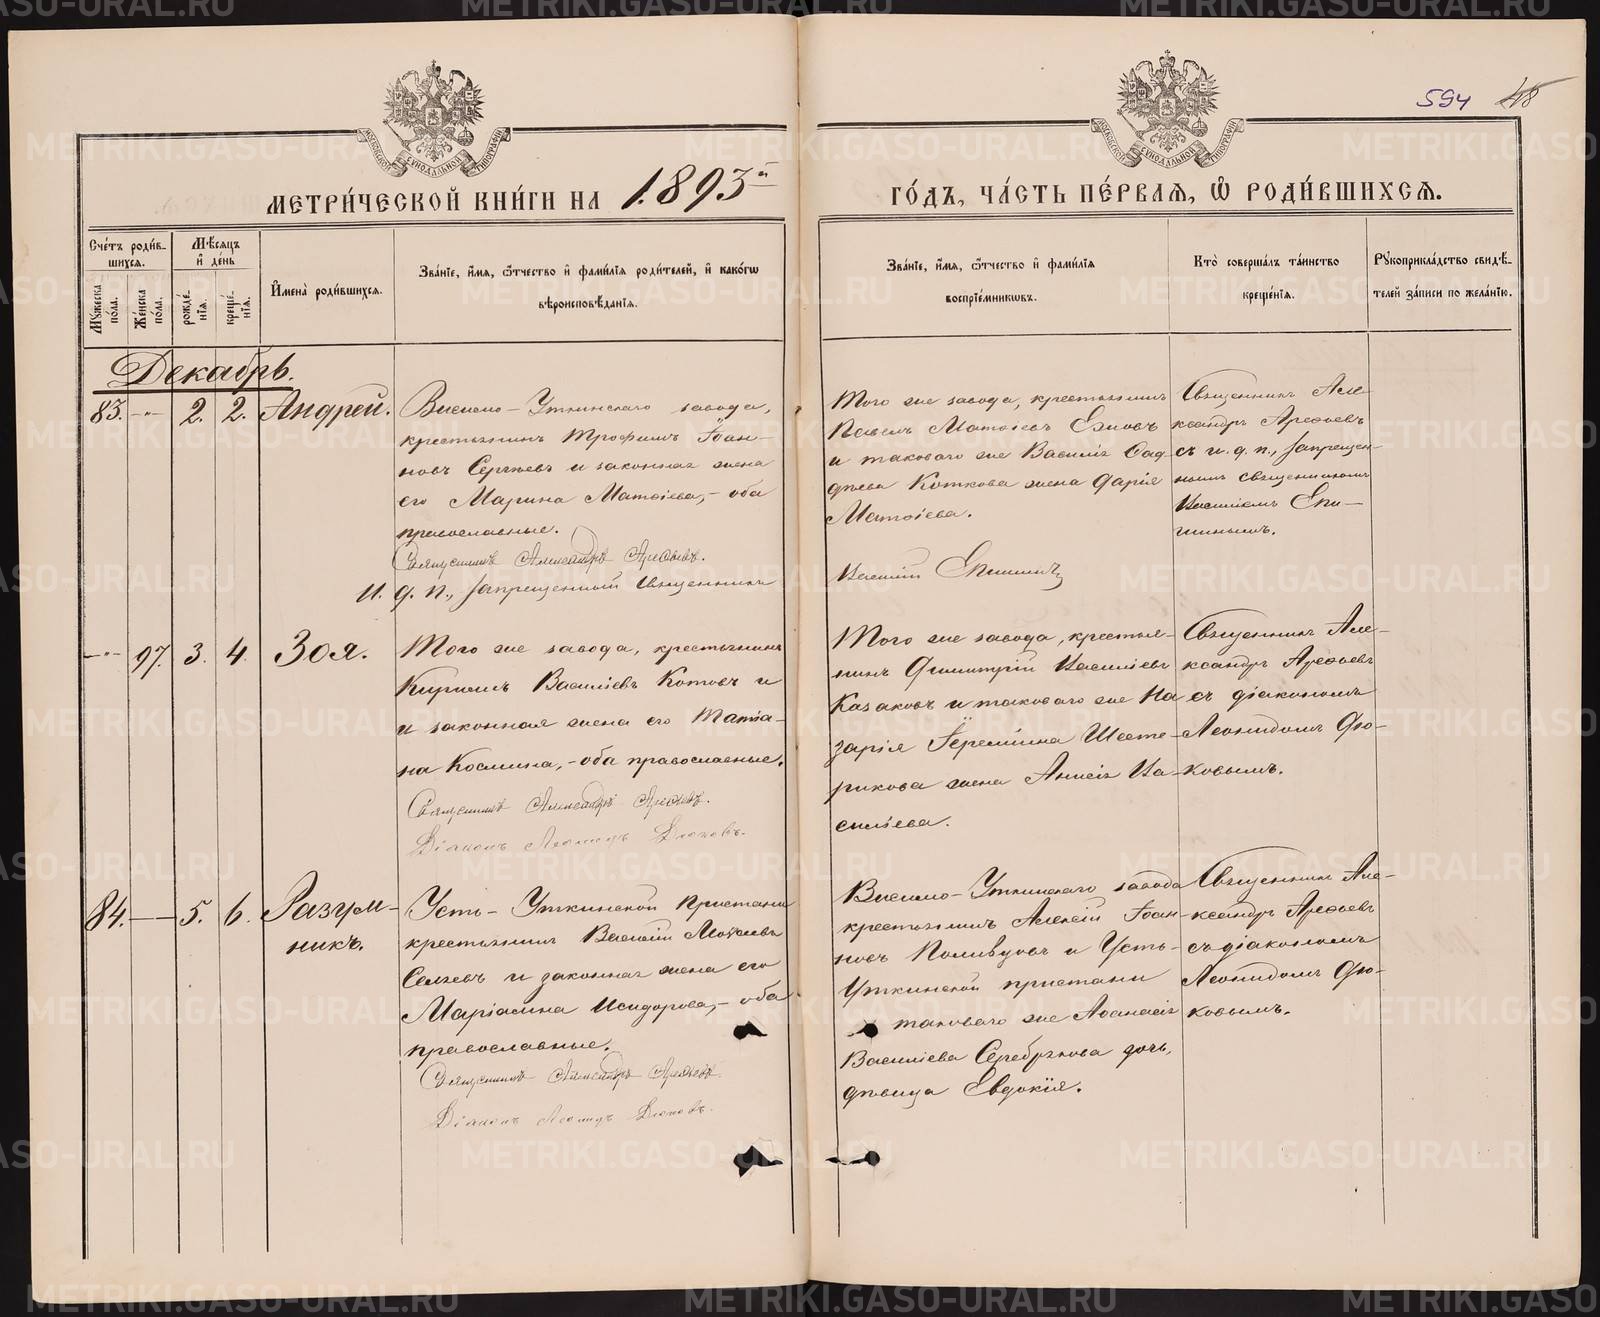 594 48
МОСКОВСКОЙ СѴНОДАЛЬНОЙ ТИПОГРАФІИ
МОСКОВСКОЙ СѴНОДАЛЬНОЙ ТИПОГРАФІИ
МЕТРИ́ЧЕСКОЙ КНИ́ГИ НА 1893й
ГО́ДЪ, ЧА́СТЬ ПЕ́РВАЯ, Ѡ҆ РОДИ́ВШИХСЯ.
Сче́тъ роди́в-
шихся.
Мꙋжеска по́ла.
Же́нска по́ла.
Мѣ́сяцъ
и҆ де́нь
рожде́-
нїя.
креще́-
нїя.
И҆мена̀ роди́вшихся.
Зва́нїе, и҆́мя, ѻ҆́тчество и҆ фами́лїя роди́телей, и҆ како́гѡ
вѣроисповѣ́данїя.
Зва́нїе, и҆́мя, ѻ҆́тчество и҆ фами́лїя
воспрїе́мникѡвъ.
Кто̀ соверша́лъ та́инство
креще́нїя.
Рꙋкоприкла́дство свидѣ́-
телей за́писи по жела́нїю.
Декабрь.
83. -"- 2. 2. Андрей.
Висимо-Уткинскаго завода,
крестьянинъ Трофимъ Іоан-
новъ Сергѣевъ и законная жена
его Марина Матѳіева,- оба
православные.
Священникъ Александръ Арефьевъ.
И. д. п., запрещенный священникъ
Того же завода, крестьянинъ
Павелъ Матѳіевъ
и таковаго же Василія Ѳад-
дѣева Коткова жена Дарія
Матѳіева.
Василій Епишинъ
Священникъ Але-
ксандръ Арефьевъ
съ и. д. п., запрещен-
нымъ священникомъ
Василіемъ Епи-
шинымъ.
-"- 97. 3. 4. Зоя.
Того же завода, крестьянинъ
Кириллъ Василіевъ Котовъ и
и законная жена его Татіа-
на Космина,- оба православные.
Священникъ Александръ Арефьевъ.
Діаконъ Леонидъ Дюковъ.
Того же завода, крестья-
нинъ Димитрій Василіевъ
Казаковъ и таковаго же На
заріа Іереміина Шесте-
рикова жена Анисія Ва-
силіева.
Священникъ Але-
ксандръ Арефьевъ
съ діакономъ
Леонидомъ Дю-
ковымъ.
84. — 5. 6. Разум-
никъ.
Усть-Уткинской пристани
крестьянинъ Василій Моѵсеевъ
и законная жена его
Маріамна Исидорова,- оба
православные.
Священникъ Александръ Арефьевъ.
Діаконъ Леонидъ Дюковъ.
Висимо-Уткинскаго завода
крестьянинъ Алексій Іоан-
новъ Поливцовъ и Усть-
Уткинской пристани
таковаго же Аѳанасія
Василіева Серебрякова дочь,
дѣвица Евдокія.
Священникъ Але-
ксандръ Арефьевъ
съ діакономъ
Леонидомъ Дю-
ковымъ.
METRIKI.GASO-URAL.RU